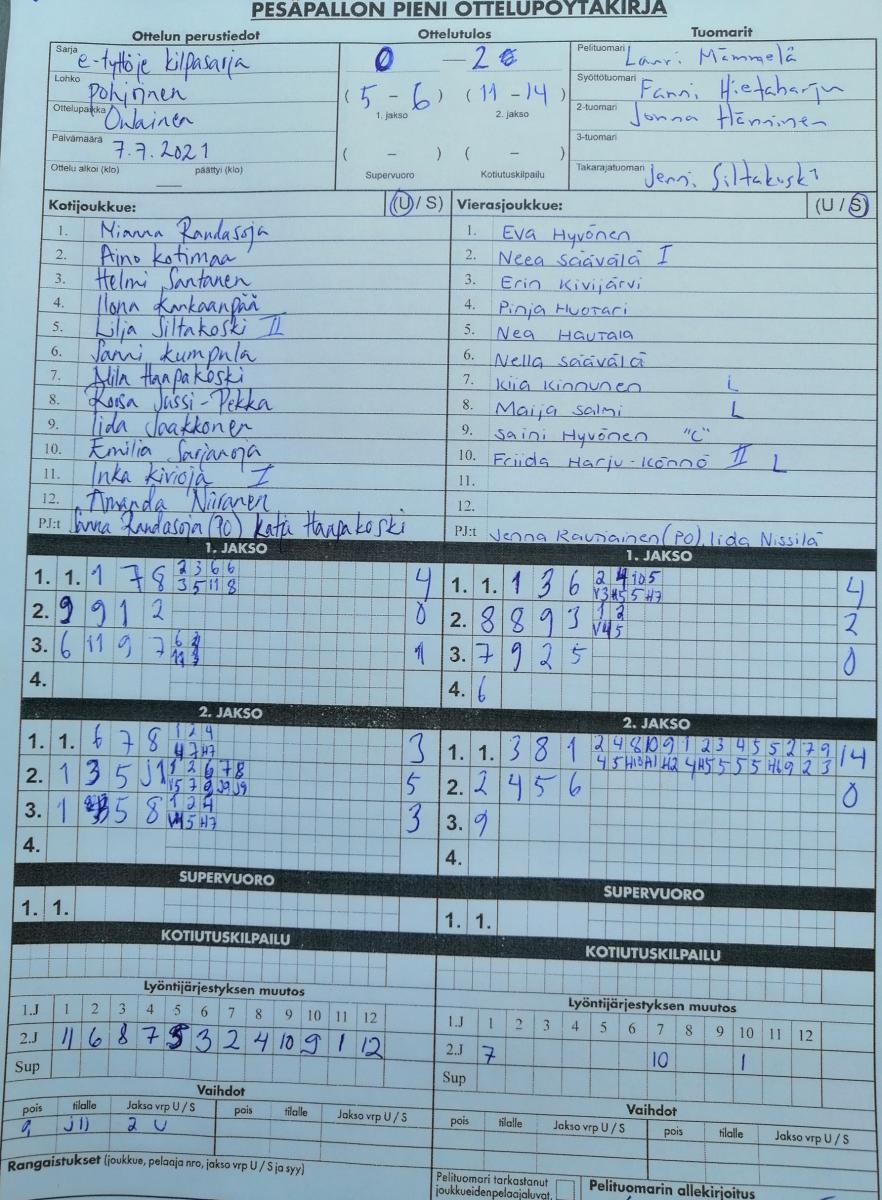 PESÄPALLON PIENI OTTELUPÖYTÄKIRJA
Ottelun perustiedot
Ottelutulos
Tuomarit
Sarja e-tyttöje kilpasarja
0 — 2
Pelituomari Lauri Mämmelä
Lohko pohjoinen
( 5 - 6 ) ( 11 - 14 )
Syöttötuomari Fanni Hietaharju
Ottelupaikka Oulainen
1. jakso 2. jakso
2-tuomari Jonna Hänninen
Päivämäärä 7.7.2021
( - ) ( - )
3-tuomari
Ottelu alkoi (klo) päättyi (klo)
Supervuoro Kotiutuskilpailu
Takarajatuomari Jenni Siltakoski
Kotijoukkue: (U / S)
1. Minna Randasoja
2. Aino kotimaa
3. Helmi Santanen
4. Ilona Kankaanpää
5. Lilja Siltakoski II
6. Sanni kumpula
7. Haapakoski
8. Roosa Jussi-Pekka
9. Iida Jaakkonen
10. Emilia Sarjanoja
11. Inka kivioja I
12. Amanda Niiranen
PJ:t Randasoja (PO) Katja Haapakoski
Vierasjoukkue: (U / S)
1. Eva Hyvönen
2. Neea Säävälä I
3. Erin Kivijärvi
4. Pinja Huotari
5. Nea Hautala
6. Nella Säävälä
7. Kiia Kinnunen L
8. Maija Salmi L
9. Saini Hyvönen "C"
10. Friida Harju-Könnö II L
11.
12.
PJ:t Jenna Rautiainen (PO), Iida Nissilä
1. JAKSO
1. 1. 1 7 8 2 3 6 6 4
3 5 11 8
2. 9 9 1 2 0
3. 6 11 9 7 1
4.
1. JAKSO
1. 1. 1 3 6 2 4 10 5 4
V3 H5 5 H7
2. 8 8 9 3 1 2 2
V4 5
3. 7 9 2 5 0
4. 6
2. JAKSO
1. 1. 6 7 8 1 2 4 3
4 7 H7
2. 1 3 5 J1 1 2 6 7 8 5
V5 7 9 J9 J9
3. 1 3 5 8 1 2 4 3
V4 5 H7
4.
2. JAKSO
1. 1. 3 8 1 2 4 8 10 9 1 2 3 4 5 5 2 7 9 14
4 5 H10 H1 H2 4 H5 5 5 5 H6 9 2 3
2. 2 4 5 6 0
3. 9
4.
SUPERVUORO
1. 1.
SUPERVUORO
1. 1.
KOTIUTUSKILPAILU
KOTIUTUSKILPAILU
Lyöntijärjestyksen muutos
1.J 1 2 3 4 5 6 7 8 9 10 11 12
2.J 11 6 8 7 5 3 2 4 10 9 1 12
Sup
Lyöntijärjestyksen muutos
1.J 1 2 3 4 5 6 7 8 9 10 11 12
2.J 7 10 1
Sup
Vaihdot
pois tilalle Jakso vrp U / S pois tilalle Jakso vrp U / S
9 J11 2 U
Vaihdot
pois tilalle Jakso vrp U / S pois tilalle Jakso vrp U / S
Rangaistukset (joukkue, pelaaja nro, jakso vrp U / S ja syy)
Pelituomari tarkastanut
joukkueidenpelaajaluvat.
Pelituomarin allekirjoitus